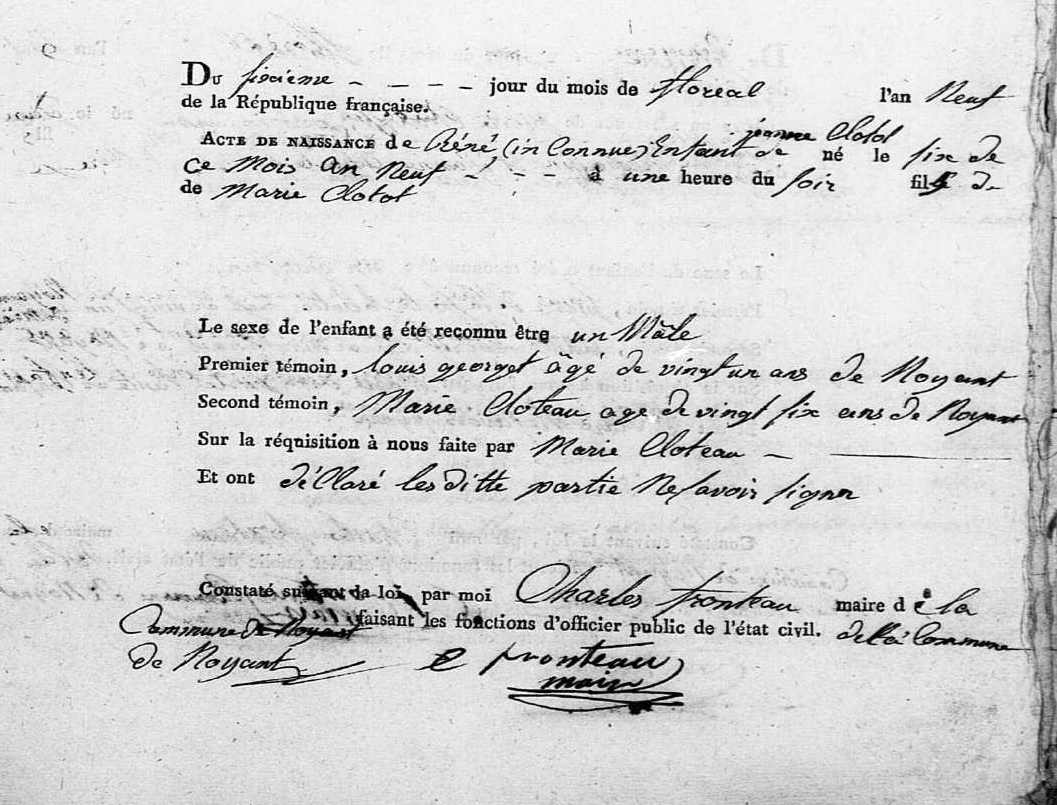 DU sixieme - - - - jour du mois de floreal l'an Neuf
de la République française.
jeanne Clotot
ACTE DE NAISSANCE de Réné (in Connue) Enfant de né le six de
Ce Mois an Neuf - - - à une heure du soir fils de
de Marie Clotot
Le sexe de l'enfant a été reconnu être un Mâle
Premier témoin, louis georget âgé de vingt un ans de Noyant
Second témoin, Marie Cloteau age de vingt six ans de Noyant
Sur la réquisition à nous faite par Marie Cloteau -
Et ont déllaré les ditte partie Ne savoir signer
Constaté suivant la loi, par moi Charles fronteau maire de la
Commune de Noyant faisant les fonctions d'officier public de l'état civil. de la Commune
de Noyant C fronteau
maire